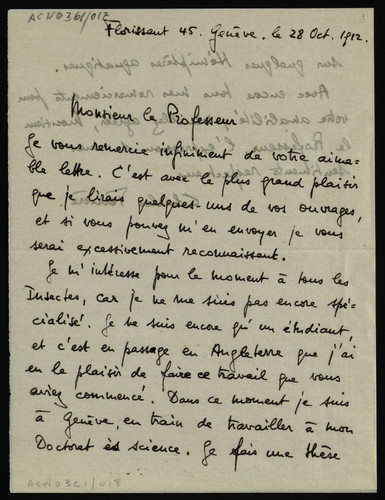 ACN0361/018
Florissant 45. Genève. le 28 Oct. 1912.
Monsieur le Professeur
Je vous remercie infiniment de votre aima-
ble lettre. C'est avec le plus grand plaisir
que je lirais quelques-uns de vos ouvrages,
et si vous pouvez m'en envoyer je vous
serai excessivement reconnaissant.
Je m'intéresse pour le moment à tous les
Insectes, car je ne me suis pas encore spé-
cialisé. Je ne suis encore qu'un étudiant,
et c'est en passage en Angleterre que j'ai
eu le plaisir de faire ce travail que vous
aviez commencé. Dans ce moment je suis
à Genève, en train de travailler à mon
Doctorat ès science. Je fais une thèse
ACN0361/018